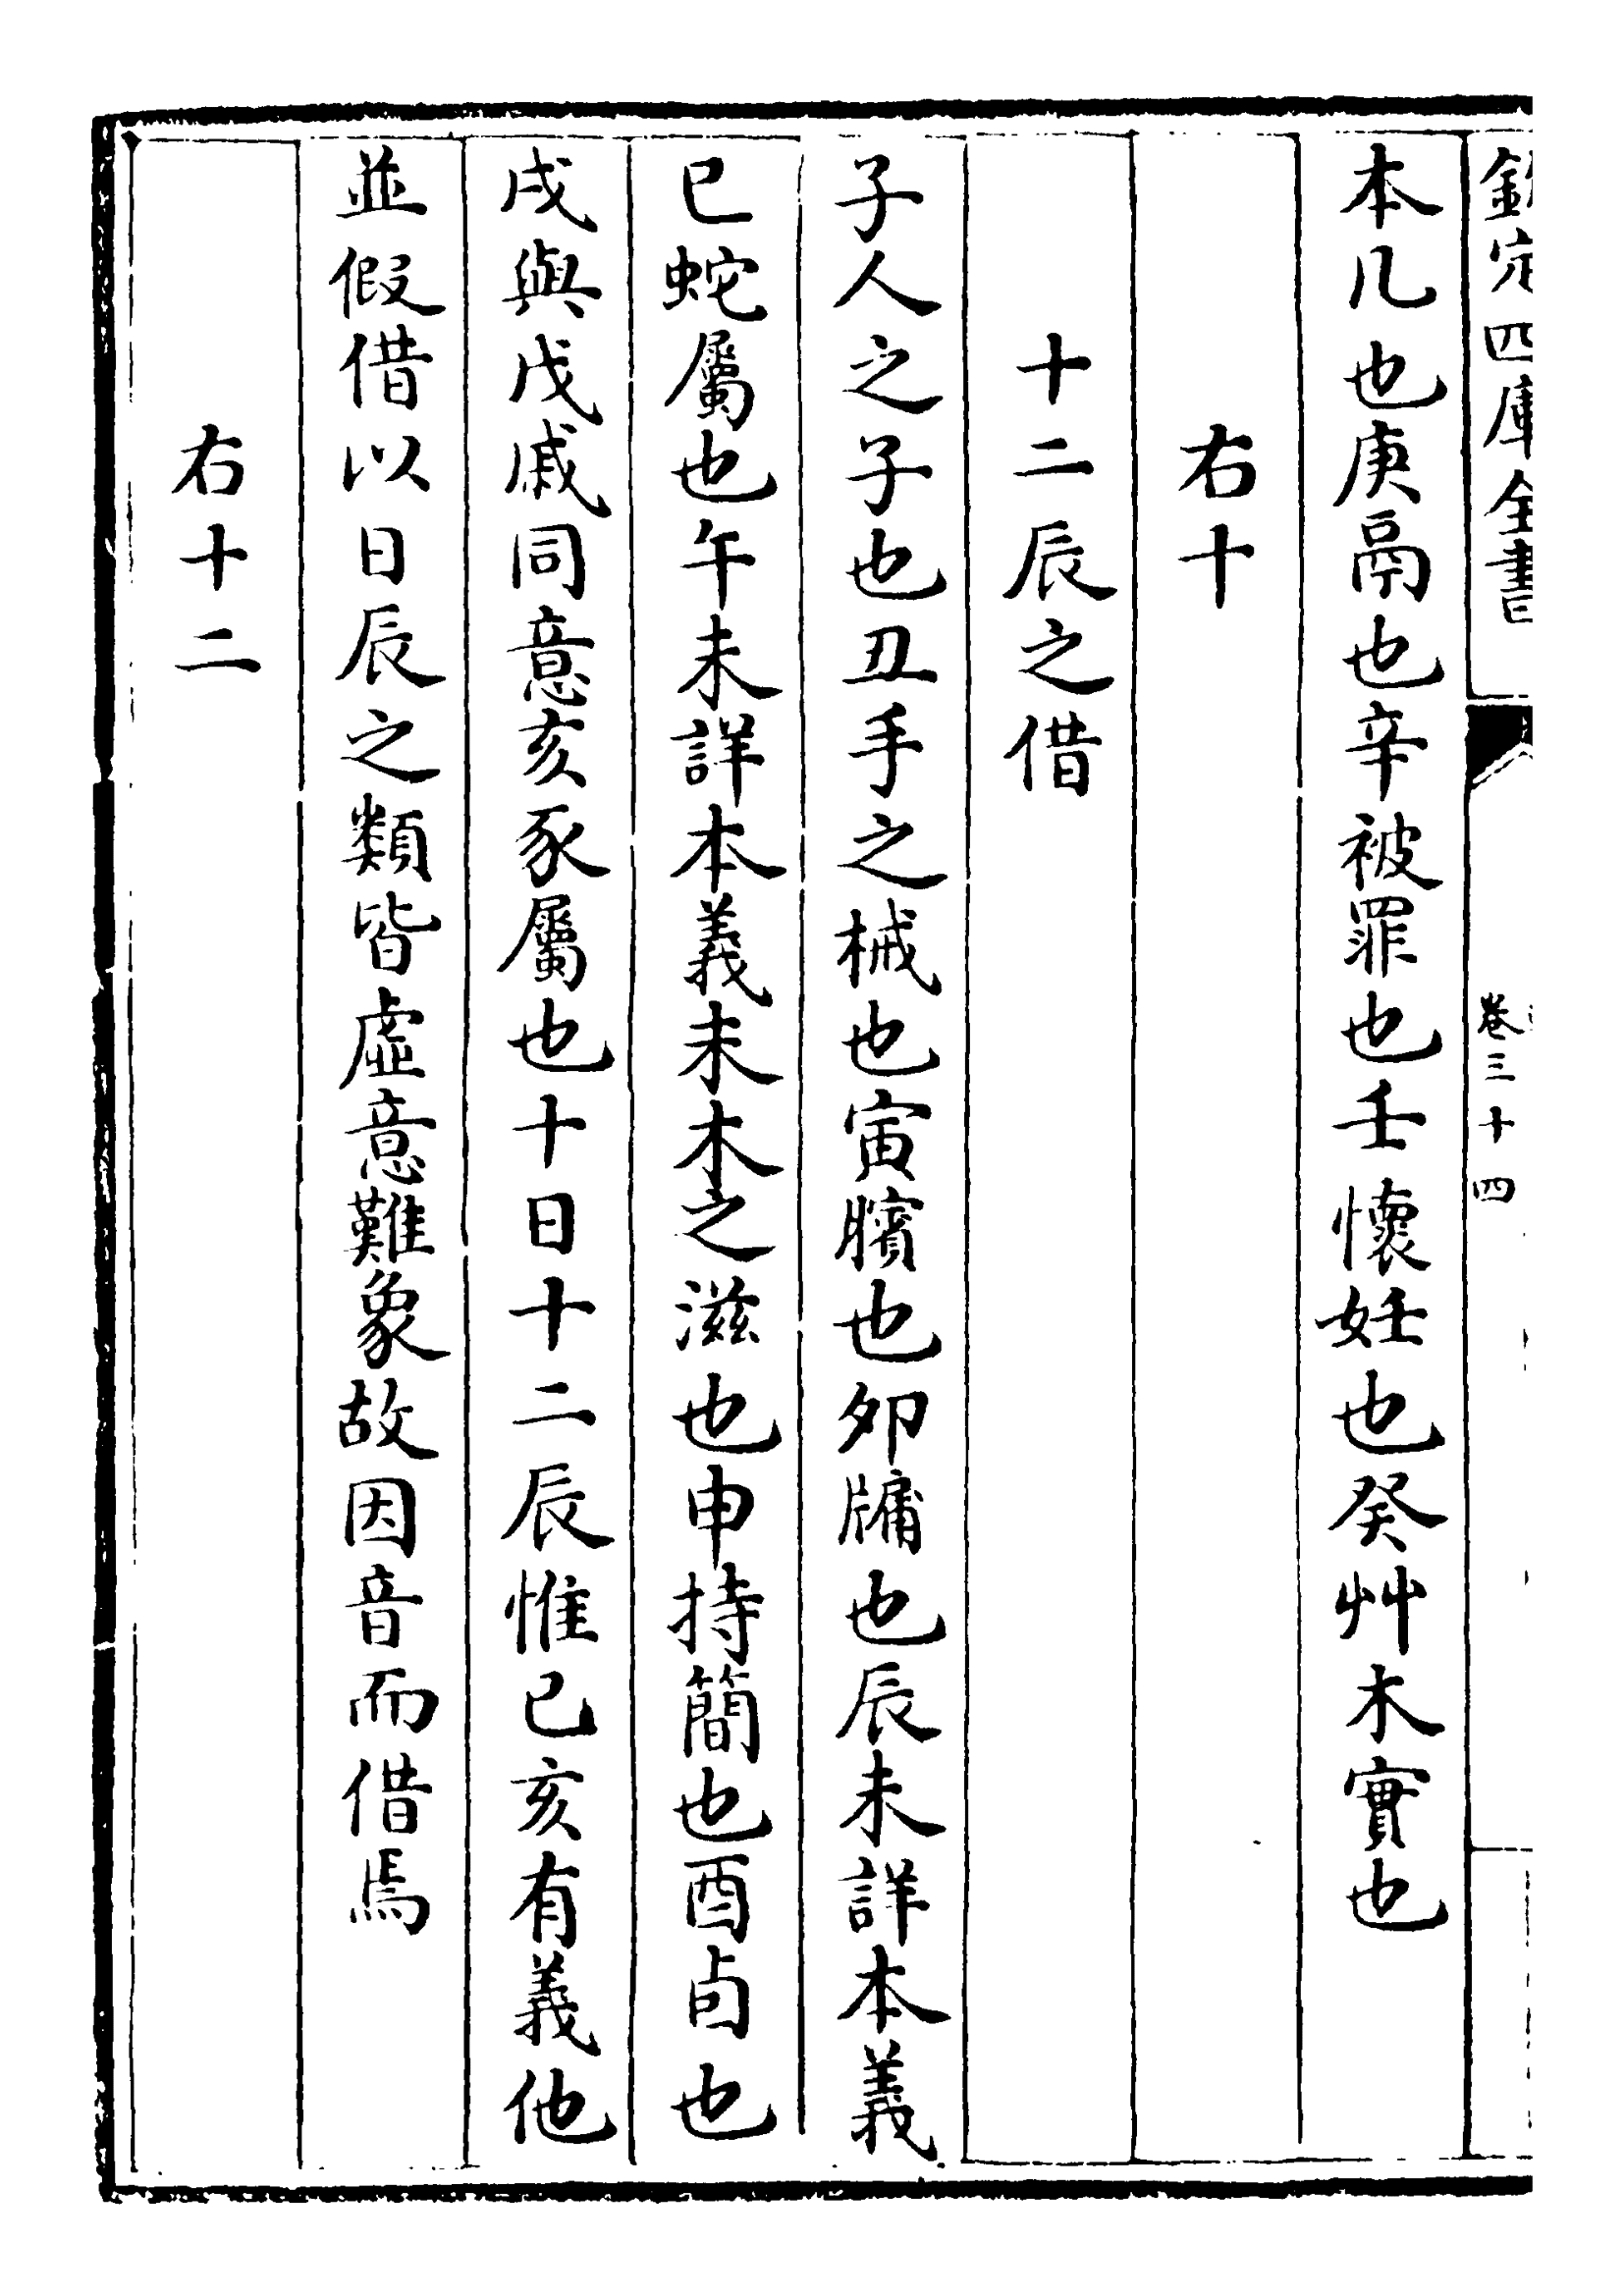 欽定四庫全書
卷三十四
本几也庚鬲也辛被罪也壬懷妊也癸艸木實也
右十
十二辰之借
子人之子也丑手之械也寅臏也夘牗也辰未詳本義
巳蛇屬也午未詳本義未木之滋也申持簡也酉卣也
戌與戊戚同意亥豕屬也十日十二辰惟巳亥有義他
並假借以日辰之類皆虛意難象故因音而借焉
右十二